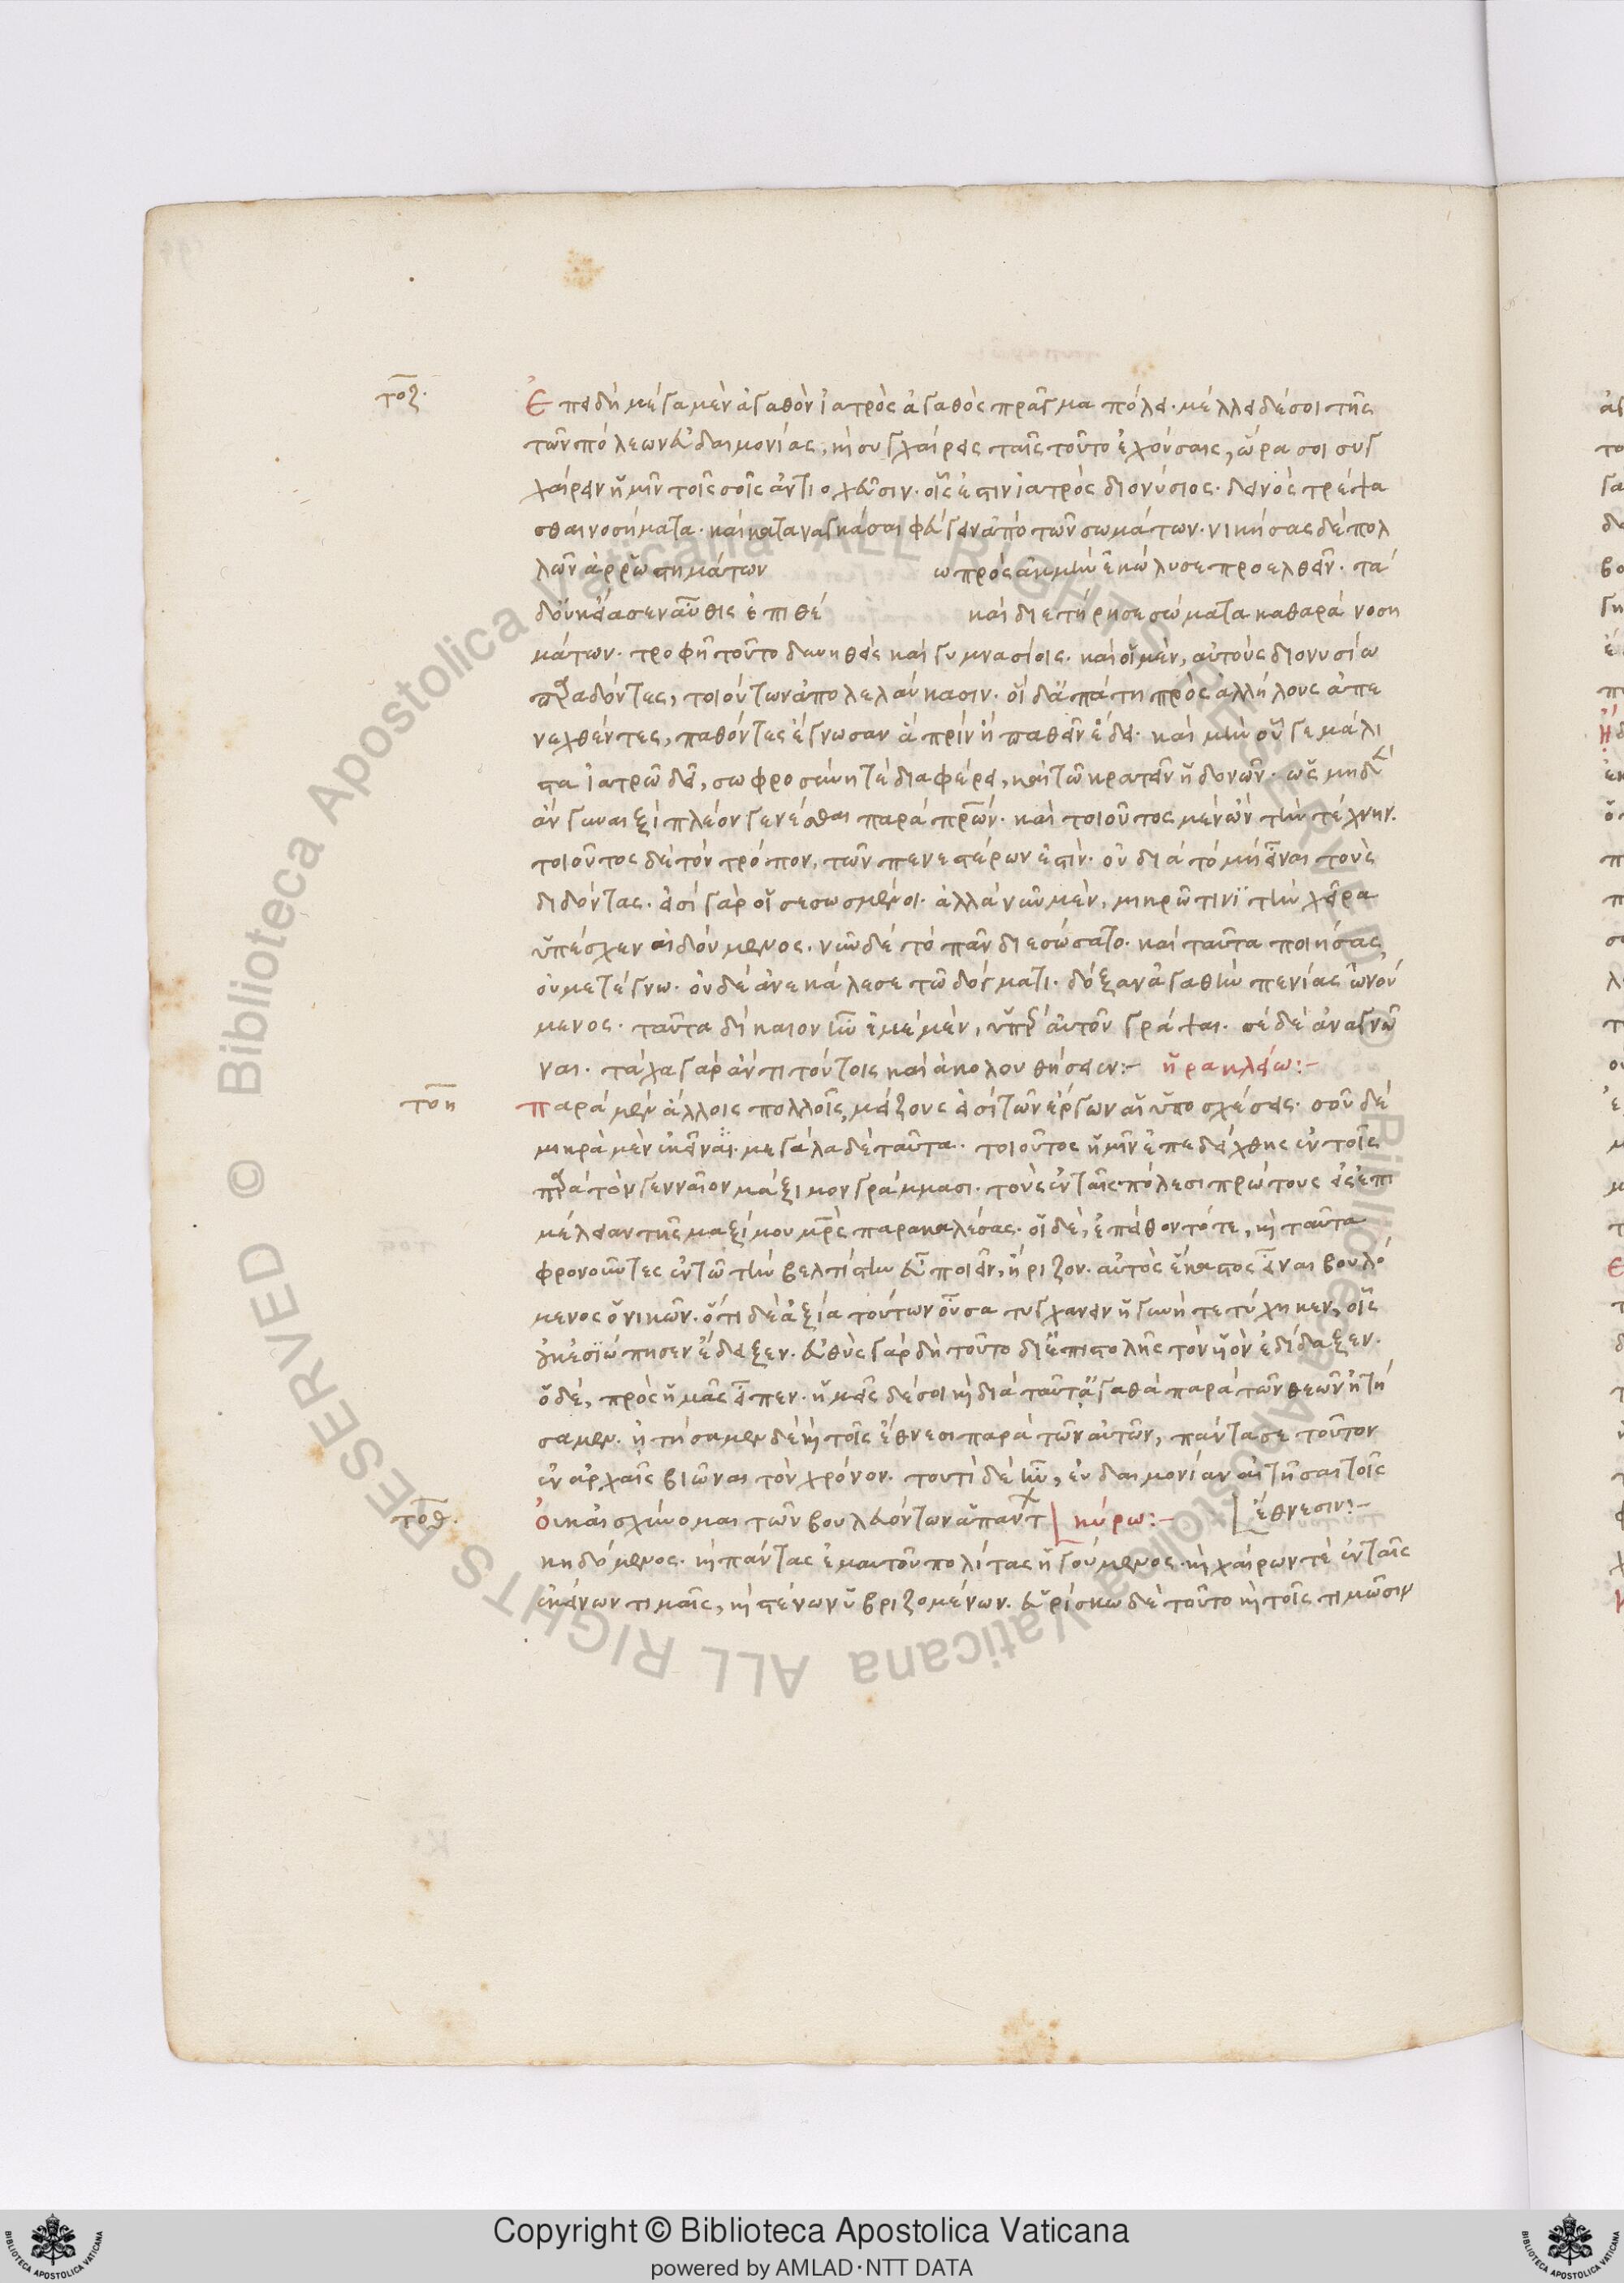 τοζ.
Ἐπειδὴ μέγα μὲν ἀγαθὸν ἰατρὸς ἀγαθὸς πρᾶγμα πόλει. μέλλει δέ σοι τῆς
τῶν πόλεων εὐδαιμονίας, καὶ συγχαίρεις ταῖς τοῦτο ἐχούσαις, ὥρα σοι συγ
χαίρειν ἡμῖν τοῖς σοῖς ἀντιοχεῦσιν. οἷς ἐστιν ἰατρὸς διονύσιος. δεινὸς τρέψα
σθαι νοσήματα. καὶ καταναγκάσαι φεύγειν ἀπὸ τῶν σωμάτων. νικήσας δὲ πολ
λῶν ἀρρωστημάτων ω πρὸς ἀκμὴν ἐκώλυσε προελθεῖν. τὰ
δ' οὐκ εἴασεν αὖθις ἐπιθέ καὶ διετήρησε σώματα καθαρὰ νοση
μάτων. τροφῇ τοῦτο δυνηθεὶς καὶ γυμνασίοις. καὶ οἱ μὲν, αὑτοὺς διονυσίω
παραδόντες, τοιούτων ἀπολελαύκασιν. οἱ δ' ἀπάτη πρὸς ἀλλήλους ἀπε
νεχθέντες, παθόντες ἔγνωσαν ἃ πρὶν ἢ παθεῖν ἔδει. καὶ μὴν οὗ γε μάλι
στα ἰατρῶ δεῖ, σωφροσύνη τὲ διαφέρει, καὶ τῶ κρατεῖν ἡδονῶν. ὡς μηδὲν
ἂν γυναιξὶ πλέον γενέσθαι παρὰ πρῶν. καὶ τοιοῦτος μὲν ὢν τὴν τέχνην.
τοιοῦτος δὲ τὸν τρόπον, τῶν πενεστέρων ἐστίν. οὐ διὰ τὸ μὴ εἶναι τοὺς
διδόντας. εἰσὶ γὰρ οἱ σεσωσμένοι. ἀλλὰ νῦν μὲν, μικρῶ τινὶ τὴν χεῖρα
ὑπέσχεν αἰδούμενος. νῦν δὲ τὸ πᾶν διεσώσατο. καὶ ταῦτα ποιήσας,
οὐ μετέγνω. οὐδὲ ἀνεκάλεσε τῶ δόγματι. δόξαν ἀγαθὴν πενίας ὠνού
μενος. ταῦτα δίκαιον ἦν ἐμὲ μὲν, ὑπὲρ αὐτοῦ γράψαι. σὲ δὲ ἀναγνῶ
ναι. τάχα γὰρ ἄν τι τούτοις καὶ ἀκολουθήσειεν:– ἡρακλείω:–
τοη
Παρὰ μὲν ἄλλοις πολλοῖς, μείζους εἰσὶ τῶν ἔργων αἱ ὑποσχέσεις. σοῦ δὲ
μικρὰ μὲν ἐκεῖναι. μεγάλα δὲ ταῦτα. τοιοῦτος ἡμῖν ἐπεδείχθης ἐν τοῖς
παρὰ τὸν γενναῖον μάξιμον γράμμασι. τοὺς ἐν ταῖς πόλεσι πρώτους εἰς ἐπι
μέλειαν τῆς μαξίμου μρὸς παρακαλέσας. οἱ δὲ, ἐπείθοντό τε, καὶ ταῦτα
φρονοῦντες ἐν τῶ τὴν βελτίστην εὖ ποιεῖν, ἤριζον. αὐτὸς ἕκαστος εἶναι βουλό
μενος ὁ νικῶν. ὅτι δὲ ἀξία τούτων οὖσα τυγχάνειν ἡ γυνὴ τετύχηκεν, οἷς
οὐκ ἐσιώπησεν ἔδειξεν. εὐθὺς γὰρ δὴ τοῦτο δι' ἐπιστολῆς τὸν ὑὸν ἐδίδαξεν.
ὁ δὲ, πρὸς ἡμᾶς εἶπεν. ἡμεῖς δέ σοι καὶ διὰ ταῦτα ἀγαθὰ παρὰ τῶν θεῶν ᾐτή
σαμεν. ᾐτήσαμεν δὲ καὶ τοῖς ἔθνεσι παρὰ τῶν αὐτῶν, πάντα σε τοῦτον
ἐν ἀρχαῖς βιῶναι τὸν χρόνον. τουτὶ δὲ ἦν, εὐδαιμονίαν αἰτῆσαι τοῖς
ἔθνεσιν:–
τοθ.
Οὐκ αἰσχύνομαι τῶν βουλευόντων ἁπάντ κύρω:–
κηδόμενος. καὶ πάντας ἐμαυτοῦ πολίτας ἡγούμενος. καὶ χαίρων τὲ ἐν ταῖς
ἐκείνων τιμαῖς, καὶ στένων ὑβριζομένων. εὑρίσκω δὲ τοῦτο καὶ τοῖς τιμῶσιν
Copyright © Biblioteca Apostolica Vaticana
powered by AMLAD·NTT DATA